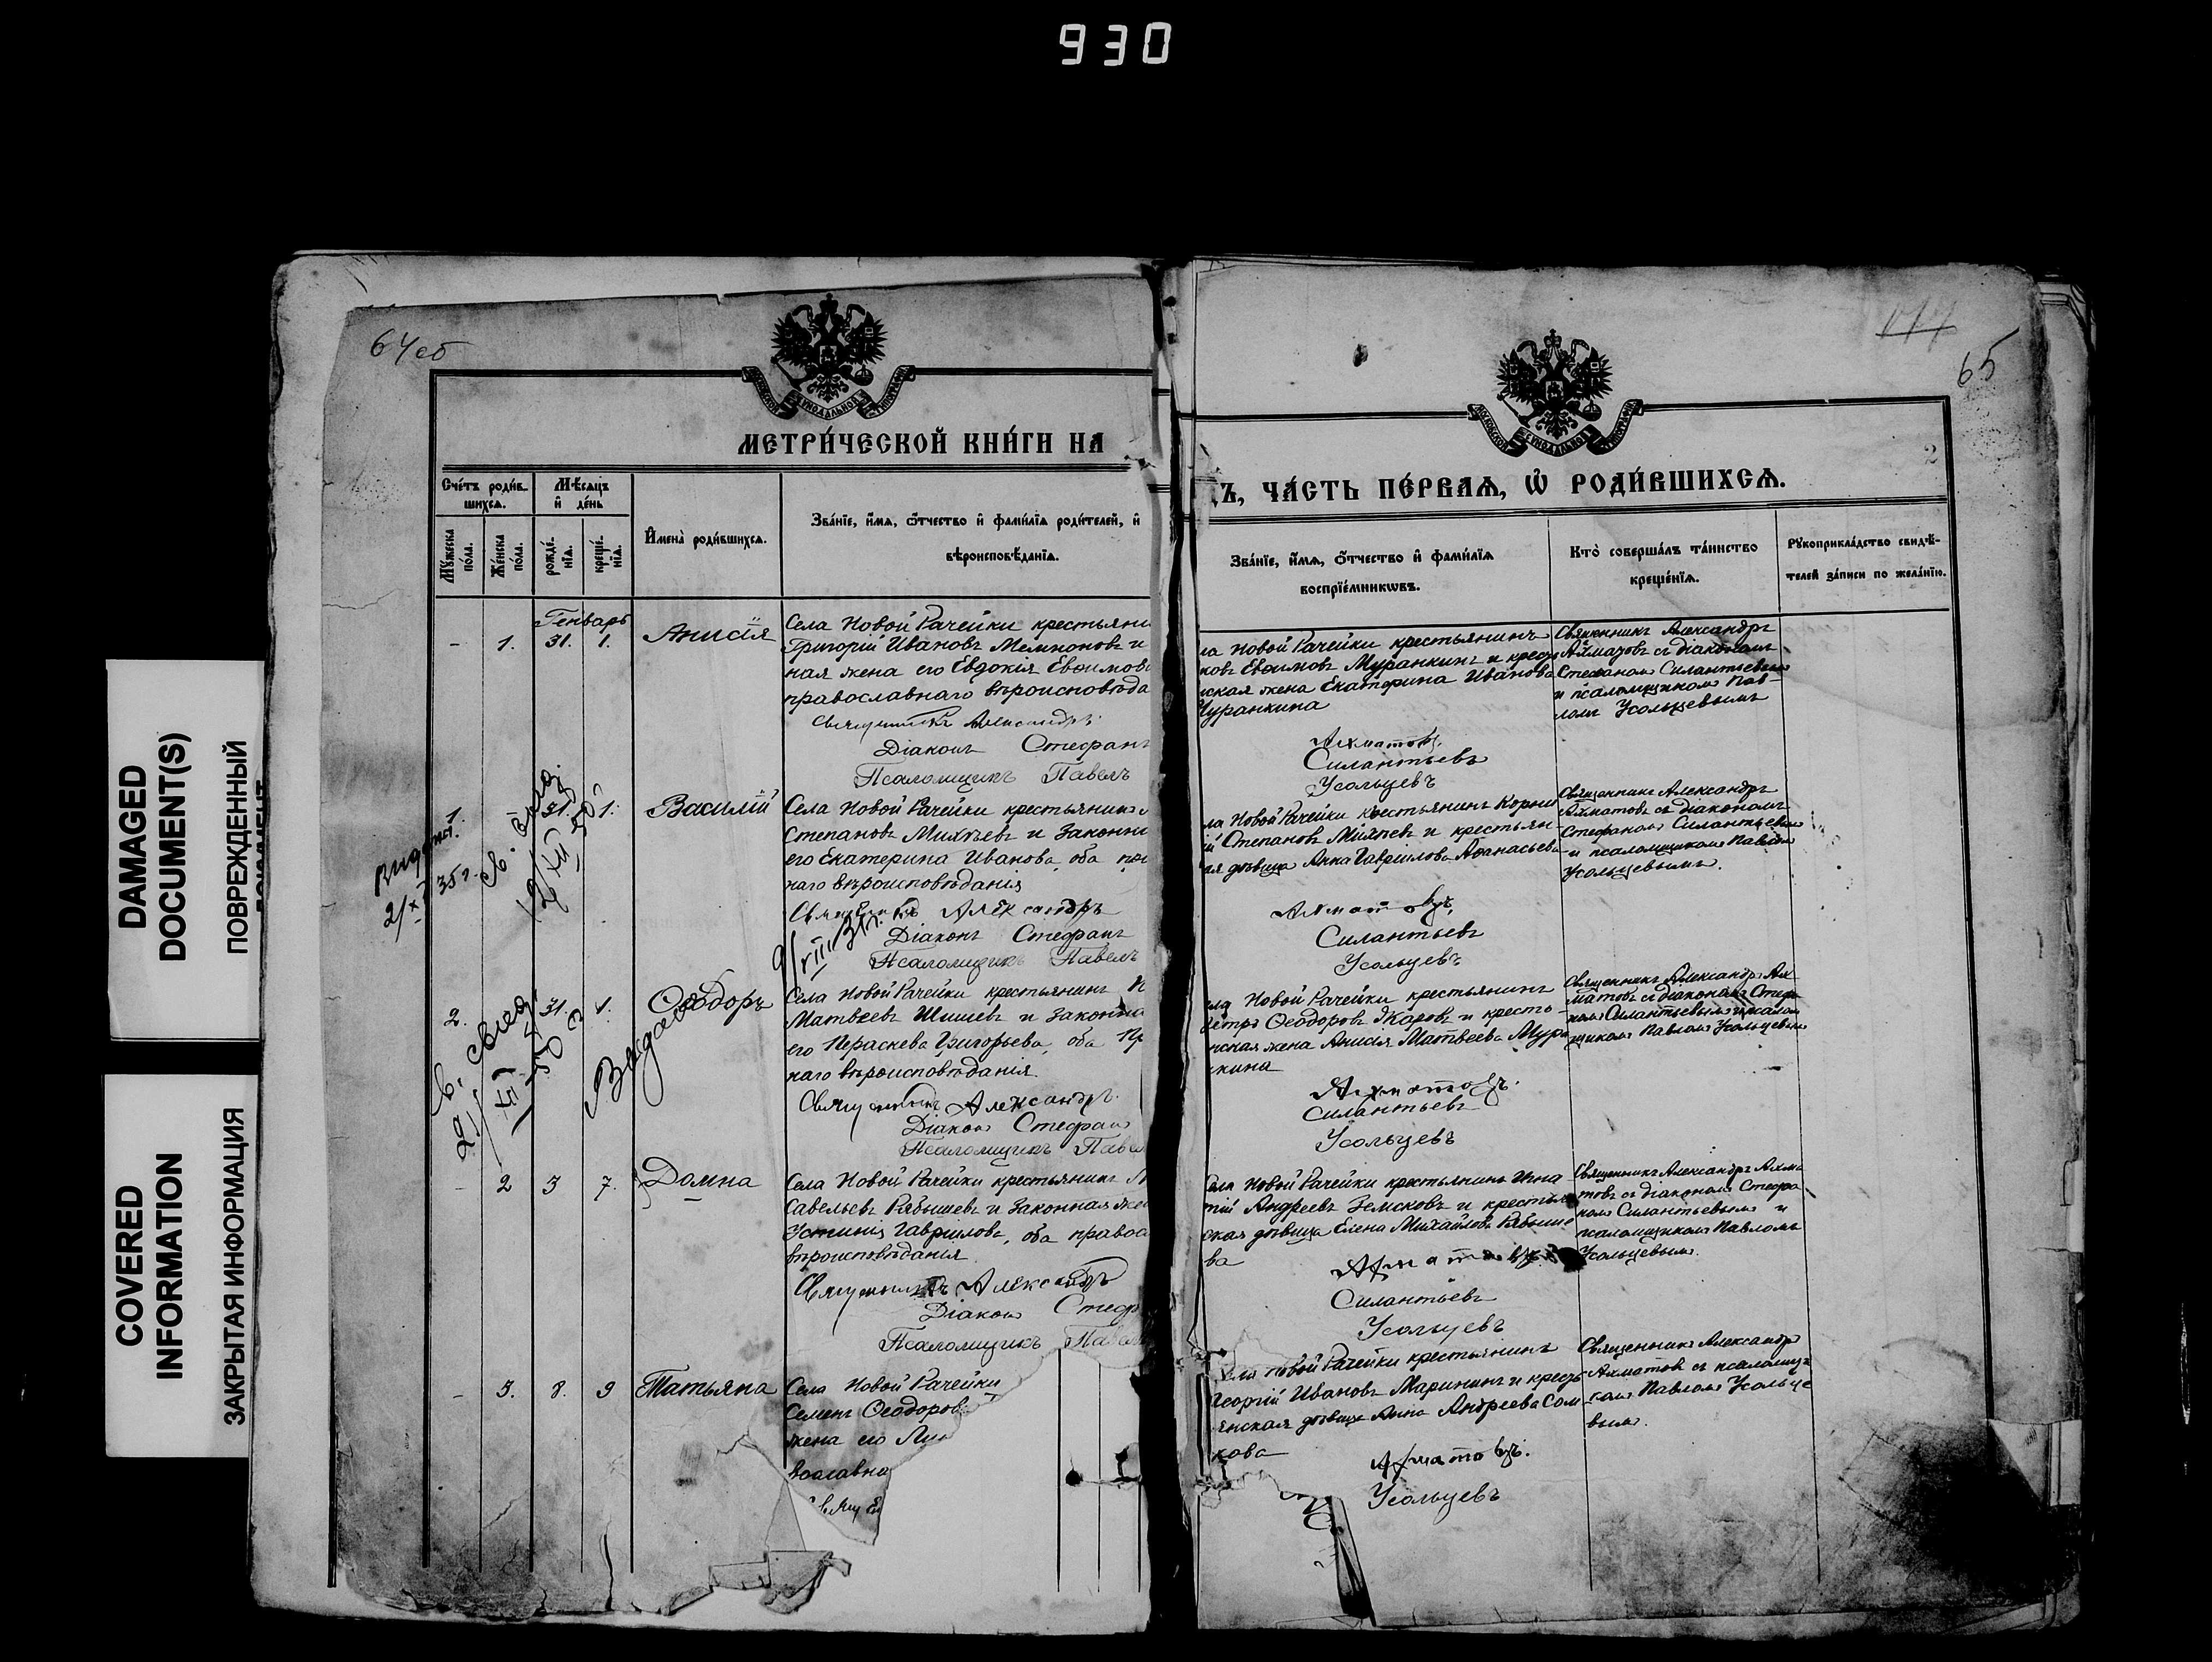 930
DAMAGED
DOCUMENT(S)
ПОВРЕЖДЕННЫЙ
COVERED
INFORMATION
ЗАКРЫТАЯ ИНФОРМАЦИЯ
64об
МЕТРИ́ЧЕСКОЙ КНИ́ГИ НА
Счéтъ роди́в-
шихсѧ.
Мѣсѧцъ
и҆ дéнь
Мꙋ́жеска
пóла.
Жéнска
пóла.
рождé-
нїѧ.
крещé-
нїѧ.
И҆менà роди́вшихсѧ.
Звáнїе, и҆́мѧ, ѻ҆́тчество и҆ фами́лїѧ роди́телей, и҆
вѣроисповѣ́данїѧ.
Генварь
- 1. 31. 1. Анисія
Села Новой Рачейки крестьяни
Григорій Ивановъ Мемноновъ и
ная жена его Евдокія Евѳимов
православнаго вѣроисповѣда
Священникъ Александръ
Діаконъ Стефанъ
Псаломщикъ Павелъ
1. 31. 1. Василій
Села Новой Рачейки крестьянинъ
Степановъ Михѣевъ и законн
его Екатерина Иванова, оба
наго вѣроисповѣданія
Священникъ Александръ
Діаконъ Стефанъ
Псаломщикъ Павелъ
Выдана
2/XI 35г.
2. 31. 1. Ѳеодоръ
Села Новой Рачейки крестьянинъ
Матвѣевъ Шишевъ и законна
его Параскева Григорьева, оба пр
наго вѣроисповѣданія.
Священникъ Александръ
Діаконъ Стефанъ
Псаломщикъ Паве
- 2 3 7. Домна
Села Новой Рачейки крестьянинъ
Савельевъ Рябышевъ и законная же
Устинія Гавріилова, оба правос
вѣроисповѣданія
Священникъ Александръ
Діаконъ Стеф
Псаломщикъ Павел
- 3. 8. 9 Татьяна
Села Новой Рачейки
Семенъ Ѳеодоров
жена его
вославна
65
2
Ъ, ЧÁСТЬ ПÉРВАѦ, Ѡ҆ РОДИ́ВШИХСѦ.
Звáнїе, и҆́мѧ, ѻ҆́тчество и҆ фами́лїѧ
воспрїéмникѡвъ.
Ктò совершáлъ тáинство
крещéнїѧ.
Рꙋкоприклáдство свидѣ́-
телей зáписи по желáнїю.
ла Новой Рачейки крестьянинъ
ковъ Евѳимовъ Муранкинъ и крест
нская жена Екатерина Иванова
Муранкина
Ахматовъ.
Силантьевъ
Усольцевъ
Священникъ Александръ
Ахматовъ съ діакономъ
Стефаномъ Силантьевымъ
и псаломщикомъ Пав-
ломъ Усольцевымъ
ла Новой Рачейки крестьянинъ Корни
ій Степановъ Михѣевъ и крестьян-
ая дѣвица Анна Гавріилова Аѳанасьева
Ахматовъ,
Силантьевъ
Усольцевъ
Священникъ Александръ
Ахматовъ съ діакономъ
Стефаномъ Силантьевымъ
и псаломщикомъ Павломъ
Усольцевымъ.
ела Новой Рачейки крестьянинъ
Петръ Ѳеодоровъ Жаровъ и кресть-
нская жена Анисія Матвеева Мура
нкина
Ахматовъ.
Силантьевъ
Усольцевъ
Священникъ Александръ Ах
матовъ съ діакономъ Стефа
номъ Силантьевымъ и псалом
щикомъ Павломъ Усольцевымъ
Села Новой Рачейки крестьянинъ Игна
тій Андреевъ Земсковъ и крестьян
ская дѣвица Елена Михайлова Рябыше
ва
Ахматовъ.
Силантьевъ
Усольцевъ
Священникъ Александръ Ахма
товъ съ діакономъ Стефа
номъ Силантьевымъ и
псаломщикомъ Павломъ
Усольцевымъ.
Села Новой Рачейки крестьянинъ
Георгій Ивановъ Марининъ и кресть-
янская дѣвица Анна Андреева Сом
кова
Ахматовъ.
Усольцевъ
Священникъ Александръ
Ахматовъ съ псаломщи
комъ Павломъ Усольце
вымъ.